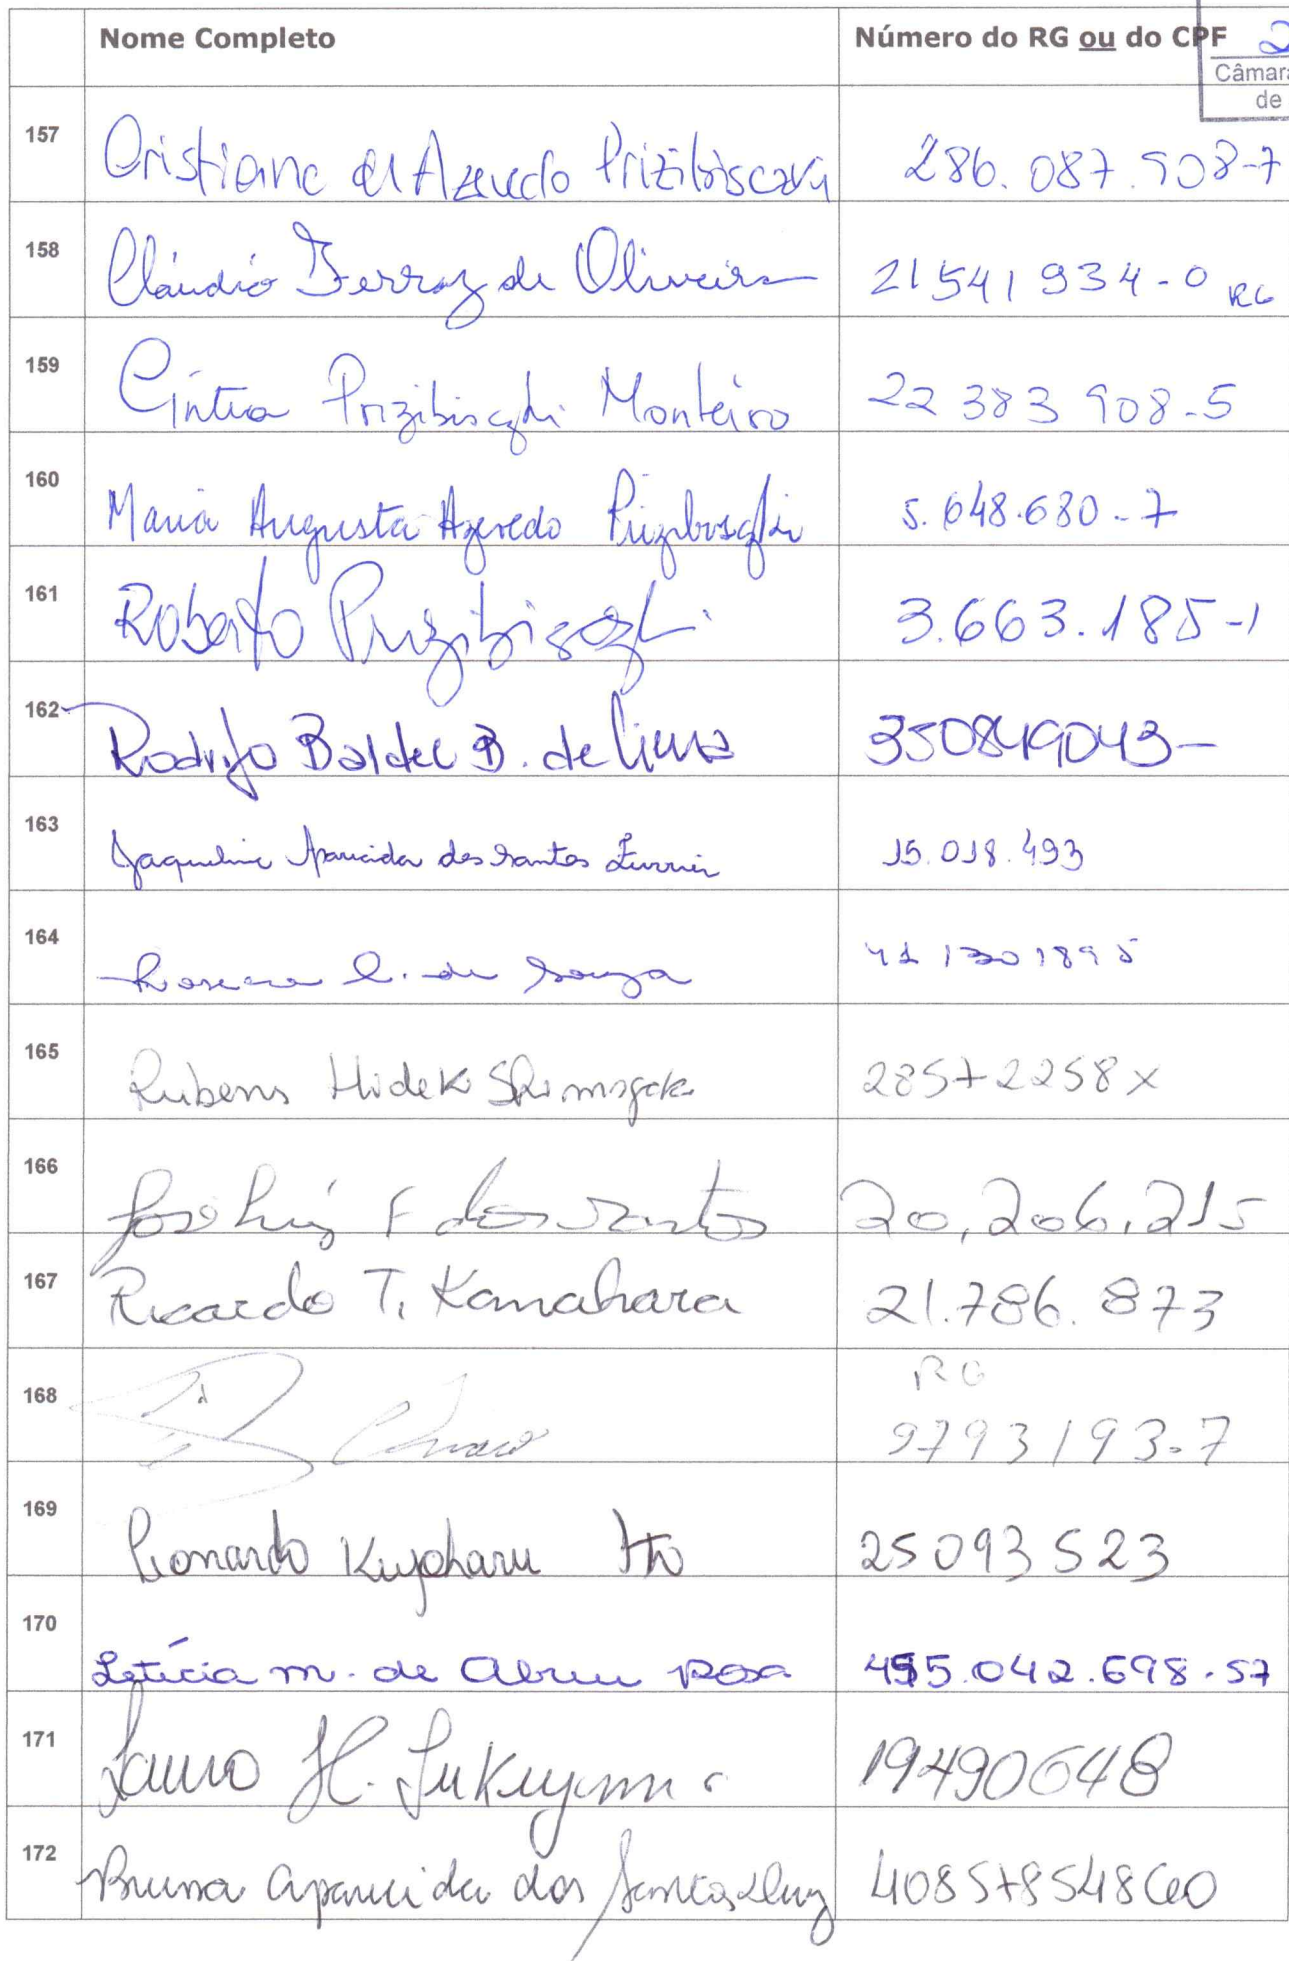 Nome Completo Número do RG ou do CPF 2
Câmara
de
157 Cristiane de Azevedo Prizibisczki 286.087.908-7
158 Cláudio Ferraz de Oliveira 21541934-0 RG
159 Cíntia Prizibisczki Monteiro 22 383 908-5
160 Maria Augusta Azevedo Prizibisczki 5.648.680-7
161 Roberto Prizibisczki 3.663.185-1
162 Rodrigo B. de Lima 350849043-
163 Jaqueline Aparecida dos Santos 15.018.493
164 de Souza
165 Rubens 28572258x
166 José Luiz F dos Santos 20,206,215
167 Ricardo T. Kamahara 21.786.873
168 RG
9793193-7
169 Leonardo Kiyoharu Ito 25093523
170 Letícia m. de Abreu Rosa
171 Lauro H. Fukuyama 19490648
172 Bruna Aparecida dos Santos Luz 40857854860